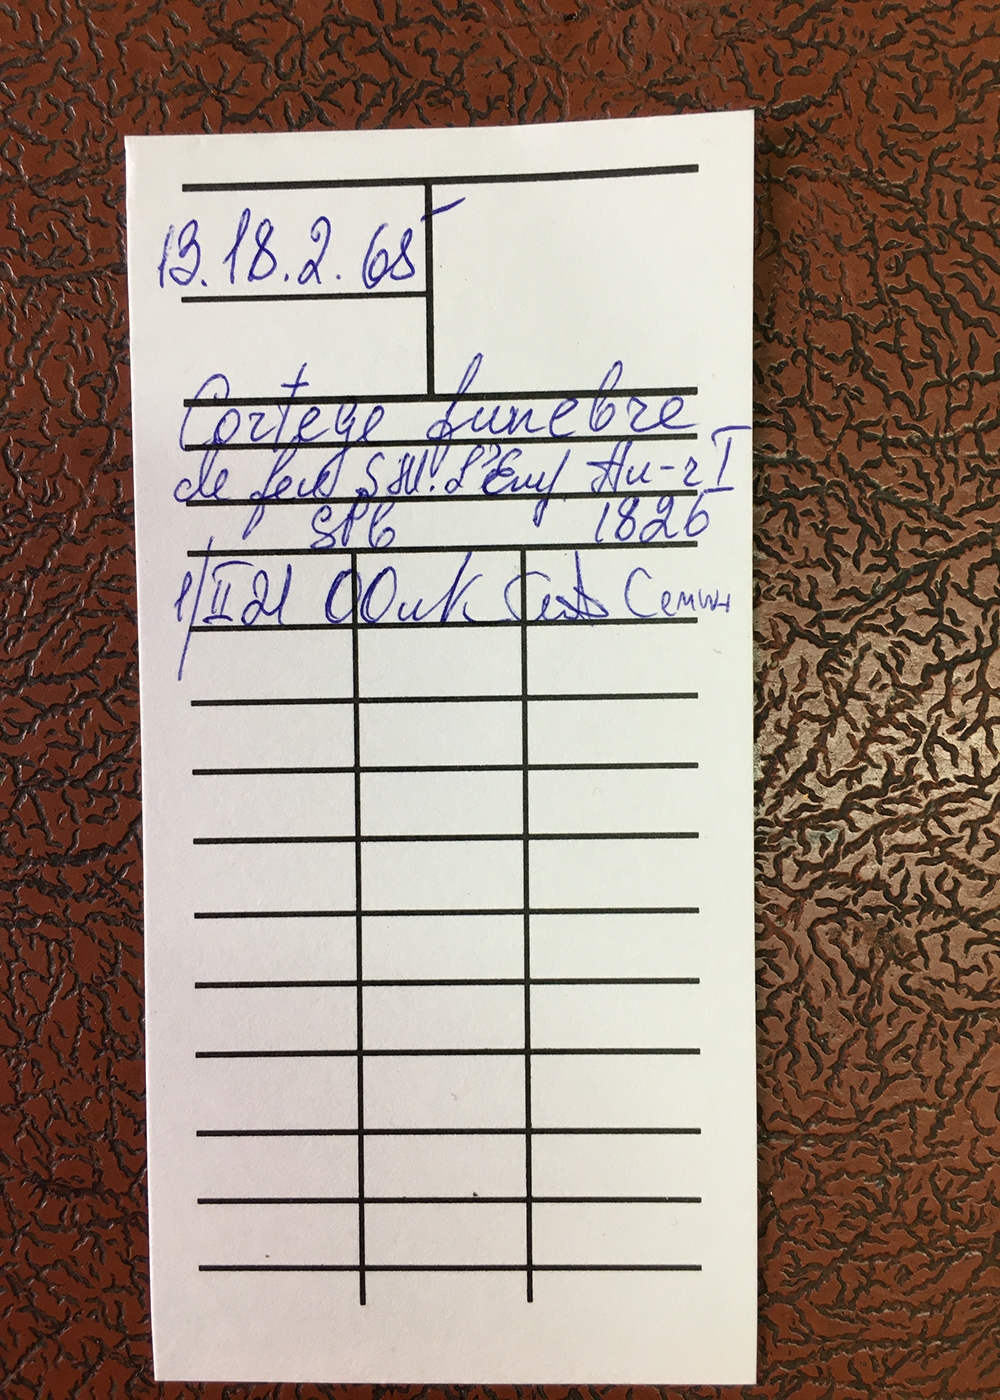 13.18.2.68
Cortege funebre
de feu S.M. L'Emp. Al-r I
SPb 1826
1/II 21 ООиК Семин